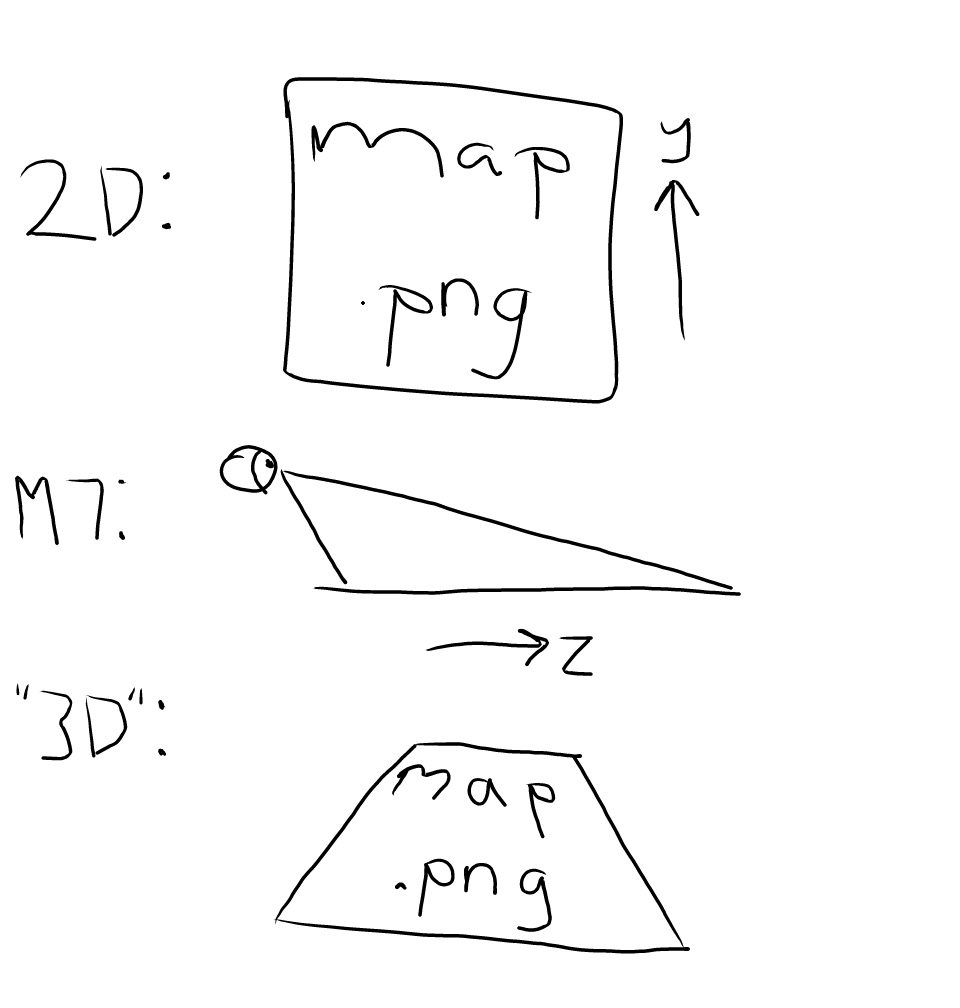 2D:
map
.png
y
M7:
z
"3D":
map
.png